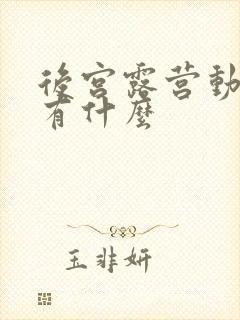 後宫露营動
有什麼
玉非妍